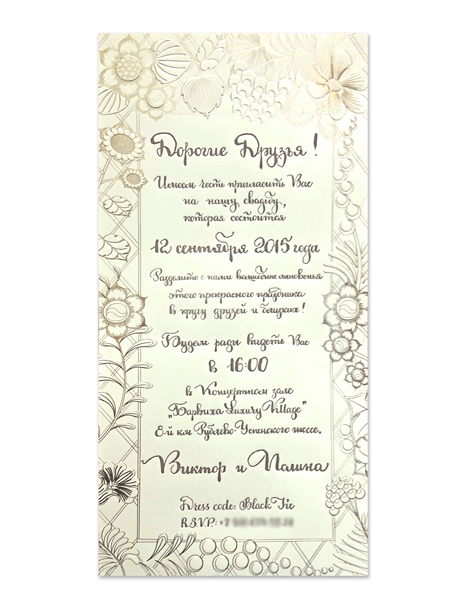 Дорогие Друзья!
Имеем честь пригласить Вас
на нашу свадьбу,
которая состоится
12 сентября 2015 года
Разделите с нами волшебные мгновенья
этого прекрасного праздника
в кругу друзей и близких!
Будем рады видеть Вас
в 16:00
в Концертном зале
„Барвиха Luxury Village"
8-й км Рублево-Успенского шоссе.
Виктор и Полина
Dress code: Black Tie
RSVP: +7